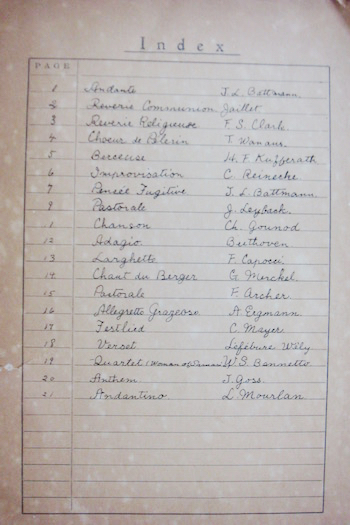 Index
PAGE
1 Andante J. L. Battmann.
2 Reverie Communion Jaillet
3 Reverie Religieuse F. S. Clark.
4 Choeur de Pelerin T. Wanans.
5 Berceuse H. F. Kufferath
6 Improvisation C. Reinecke
7 Pensée Fugitive J. L. Battmann.
9 Pastorale J. Leyback.
1 Chanson Ch. Gounod
12 Adagio. Beethoven
13 Larghetto F. Capocci.
14 Chant du Berger G. Merckel.
15 Pastorale F. Archer
16 Allegretto Grazeoso A. Ergmann.
17 Festlied C. Mayer
18 Verset Lefebure Wily
19 Quartet (Woman of W. S. Bennette
20 Anthem J. Goss.
21 Andantino L. Mourlan.